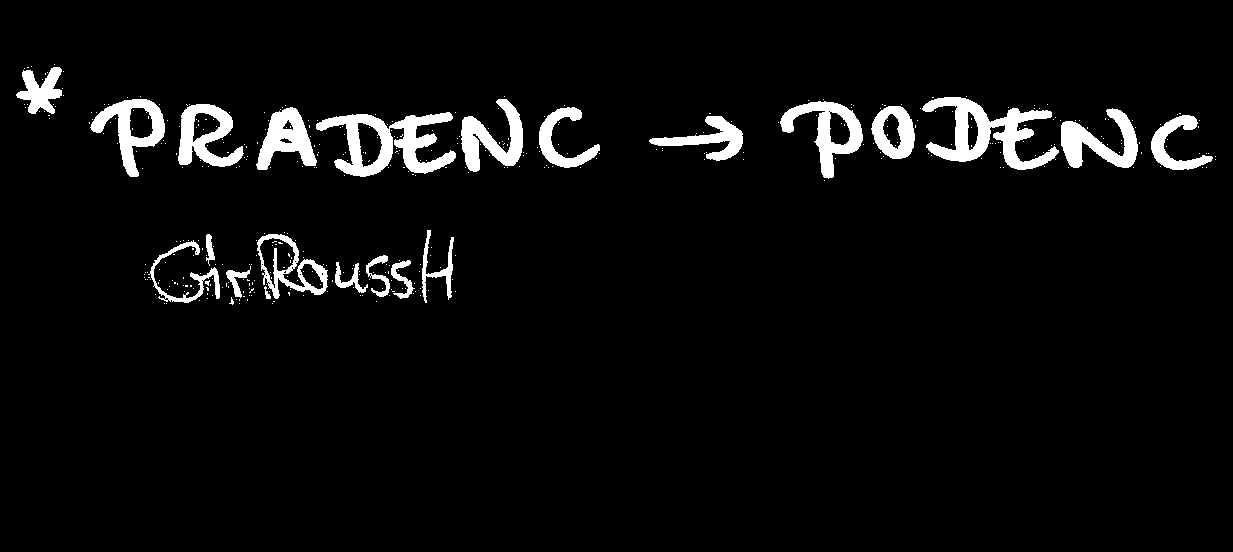 * PRADENC → PODENC
GirRoussH